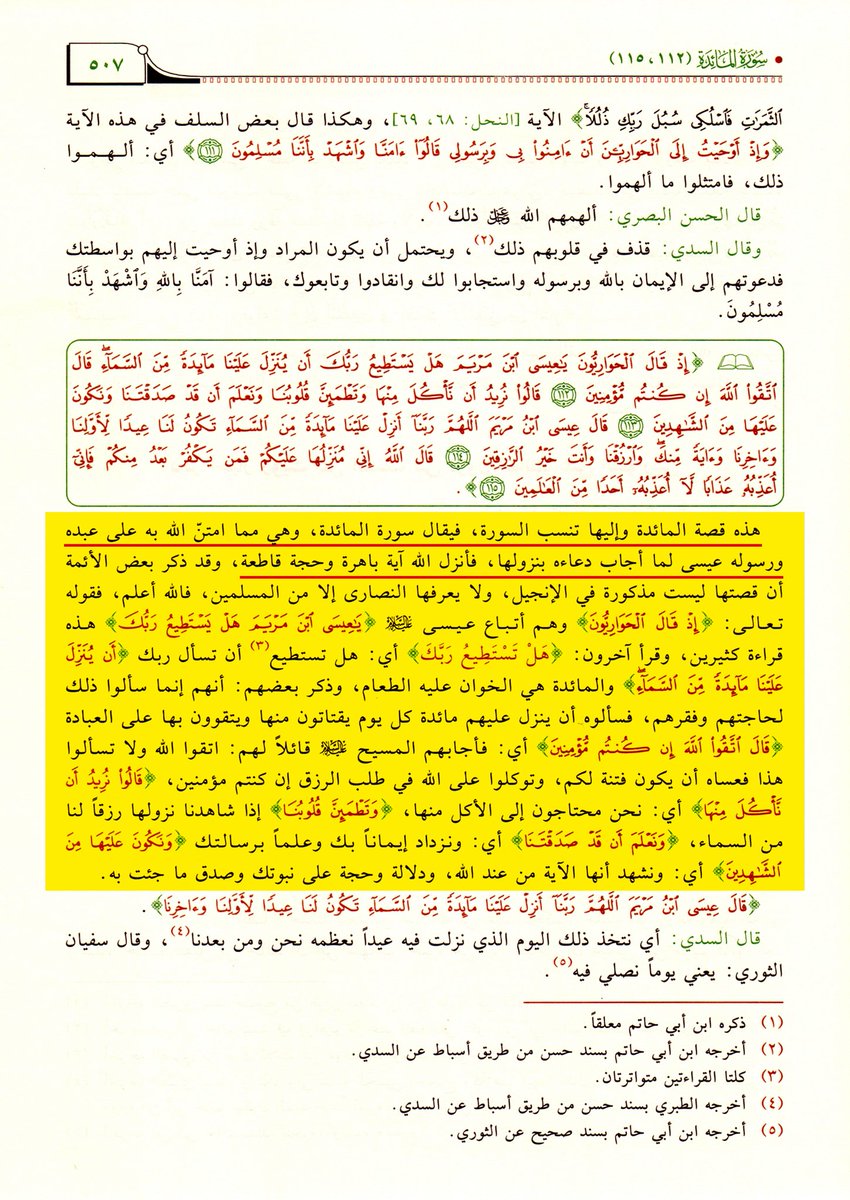 • سُورَةُ المَائِدَة (١١٢، ١١٥)
٥٠٧
ٱلثَّمَرَٰتِ فَٱسْلُكِى سُبُلَ رَبِّكِ ذُلُلًا﴾ الآية [النحل: ٦٨، ٦٩]، وهكذا قال بعض السلف في هذه الآية
﴿وَإِذْ أَوْحَيْتُ إِلَى ٱلْحَوَارِيِّـۧنَ أَنْ ءَامِنُوا۟ بِى وَبِرَسُولِى قَالُوٓا۟ ءَامَنَّا وَٱشْهَدْ بِأَنَّنَا مُسْلِمُونَ ﴿١١١﴾﴾ أي: ألهموا
ذلك، فامتثلوا ما ألهموا.
قال الحسن البصري: ألهمهم الله ﷿ ذلك(١).
وقال السدي: قذف في قلوبهم ذلك(٢)، ويحتمل أن يكون المراد وإذ أوحيت إليهم بواسطتك
فدعوتهم إلى الإيمان بالله وبرسوله واستجابوا لك وانقادوا وتابعوك، فقالوا: آمَنَّا بِاللهِ وَٱشْهَدْ بِأَنَّنَا
مُسْلِمُونَ.
﴿إِذْ قَالَ ٱلْحَوَارِيُّونَ يَٰعِيسَى ٱبْنَ مَرْيَمَ هَلْ يَسْتَطِيعُ رَبُّكَ أَن يُنَزِّلَ عَلَيْنَا مَآئِدَةً مِّنَ ٱلسَّمَآءِ ۖ قَالَ
ٱتَّقُوا۟ ٱللَّهَ إِن كُنتُم مُّؤْمِنِينَ ﴿١١٢﴾ قَالُوا۟ نُرِيدُ أَن نَّأْكُلَ مِنْهَا وَتَطْمَئِنَّ قُلُوبُنَا وَنَعْلَمَ أَن قَدْ صَدَقْتَنَا وَنَكُونَ
عَلَيْهَا مِنَ ٱلشَّٰهِدِينَ ﴿١١٣﴾ قَالَ عِيسَى ٱبْنُ مَرْيَمَ ٱللَّهُمَّ رَبَّنَآ أَنزِلْ عَلَيْنَا مَآئِدَةً مِّنَ ٱلسَّمَآءِ تَكُونُ لَنَا عِيدًا لِّأَوَّلِنَا
وَءَاخِرِنَا وَءَايَةً مِّنكَ ۖ وَٱرْزُقْنَا وَأَنتَ خَيْرُ ٱلرَّٰزِقِينَ ﴿١١٤﴾ قَالَ ٱللَّهُ إِنِّى مُنَزِّلُهَا عَلَيْكُمْ ۖ فَمَن يَكْفُرْ بَعْدُ مِنكُمْ فَإِنِّىٓ
أُعَذِّبُهُۥ عَذَابًا لَّآ أُعَذِّبُهُۥٓ أَحَدًا مِّنَ ٱلْعَٰلَمِينَ ﴿١١٥﴾﴾.
هذه قصة المائدة وإليها تنسب السورة، فيقال سورة المائدة، وهي مما امتنّ الله به على عبده
ورسوله عيسى لما أجاب دعاءه بنزولها، فأنزل الله آية باهرة وحجة قاطعة، وقد ذكر بعض الأئمة
أن قصتها ليست مذكورة في الإنجيل، ولا يعرفها النصارى إلا من المسلمين، فالله أعلم، فقوله
تعالى: ﴿إِذْ قَالَ ٱلْحَوَارِيُّونَ﴾ وهم أتباع عيسى ﵇ ﴿يَٰعِيسَى ٱبْنَ مَرْيَمَ هَلْ يَسْتَطِيعُ رَبُّكَ﴾ هذه
قراءة كثيرين، وقرأ آخرون: ﴿هَلْ تَسْتَطِيعُ رَبَّكَ﴾ أي: هل تستطيع(٣) أن تسأل ربك ﴿أَن يُنَزِّلَ
عَلَيْنَا مَآئِدَةً مِّنَ ٱلسَّمَآءِ﴾ والمائدة هي الخوان عليه الطعام، وذكر بعضهم: أنهم إنما سألوا ذلك
لحاجتهم وفقرهم، فسألوه أن ينزل عليهم مائدة كل يوم يقتاتون منها ويتقوون بها على العبادة
﴿قَالَ ٱتَّقُوا۟ ٱللَّهَ إِن كُنتُم مُّؤْمِنِينَ﴾ أي: فأجابهم المسيح ﵇ قائلاً لهم: اتقوا الله ولا تسألوا
هذا فعساه أن يكون فتنة لكم، وتوكلوا على الله في طلب الرزق إن كنتم مؤمنين، ﴿قَالُوا۟ نُرِيدُ أَن
نَّأْكُلَ مِنْهَا﴾ أي: نحن محتاجون إلى الأكل منها، ﴿وَتَطْمَئِنَّ قُلُوبُنَا﴾ إذا شاهدنا نزولها رزقاً لنا
من السماء، ﴿وَنَعْلَمَ أَن قَدْ صَدَقْتَنَا﴾ أي: ونزداد إيماناً بك وعلماً برسالتك ﴿وَنَكُونَ عَلَيْهَا مِنَ
ٱلشَّٰهِدِينَ﴾ أي: ونشهد أنها الآية من عند الله، ودلالة وحجة على نبوتك وصدق ما جئت به.
﴿قَالَ عِيسَى ٱبْنُ مَرْيَمَ ٱللَّهُمَّ رَبَّنَآ أَنزِلْ عَلَيْنَا مَآئِدَةً مِّنَ ٱلسَّمَآءِ تَكُونُ لَنَا عِيدًا لِّأَوَّلِنَا وَءَاخِرِنَا﴾.
قال السدي: أي نتخذ ذلك اليوم الذي نزلت فيه عيداً نعظمه نحن ومن بعدنا(٤)، وقال سفيان
الثوري: يعني يوماً نصلي فيه(٥).
(١) ذكره ابن أبي حاتم معلقاً.
(٢) أخرجه ابن أبي حاتم بسند حسن من طريق أسباط عن السدي.
(٣) كلتا القراءتين متواترتان.
(٤) أخرجه الطبري بسند حسن من طريق أسباط عن السدي.
(٥) أخرجه ابن أبي حاتم بسند صحيح عن الثوري.